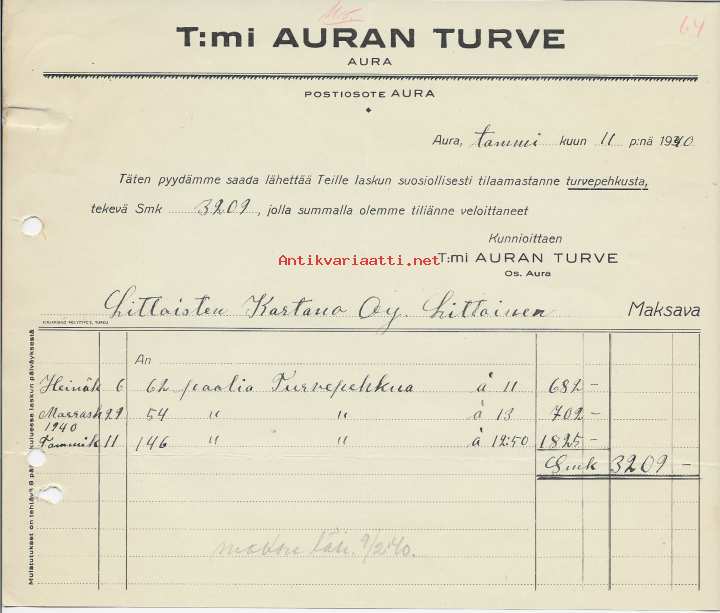 64
T:mi AURAN TURVE
AURA
POSTIOSOTE AURA
Aura, tammi kuun 11 p:nä 1940
Täten pyydämme saada lähettää Teille laskun suosiollisesti tilaamastanne turvepehkusta,
tekevä Smk 3209, jolla summalla olemme tiliänne veloittaneet
Kunnioittaen
Antikvariaatti.net
T:mi AURAN TURVE
Os. Aura
Littoisten Kartano Oy. Littoinen Maksava
An
Heinäk 6 62 paalia Turvepehkua à 11 682 –
Marrask 29 54 " " à 13 702 –
1940
Tammik 11 146 " " à 12:50 1825 –
Smk 3209 –
9/2 40.
Muistutukset on tehtävä 8 päivän kuluessa laskun päiväyksestä